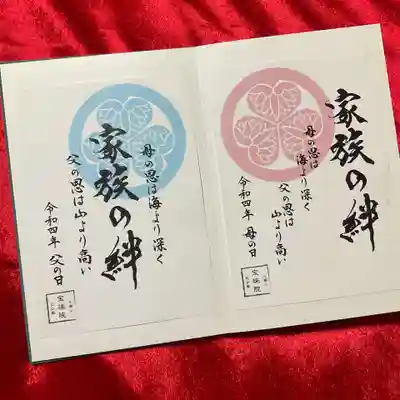 家族の絆
母の恩は
海より深く
父の恩は
山より高い
令和四年 母の日
宝珠院
家族の絆
母の恩は海より深く
父の恩は山より高い
令和四年 父の日
宝珠院